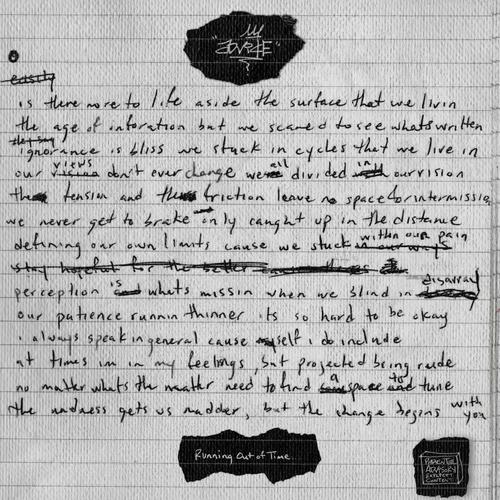 "ZOVRCE"
easily
is there more to life aside the surface that we livin
the age of inforation but we scared to see whats written
they say
ignorance is bliss we stuck in cycles that we live in
our views don't ever change we all divided in our vision
the tension and the friction leave no space for intermissio
we never get to brake only caught up in the distance
defining our own limits cause we stuck within our pain
in our ways
stay hopeful for the better
perception is whats missin when we blind in disarray
our patience runnin thinner its so hard to be okay
i always speak in general cause myself i do include
at times im in my feelings, but projected bring rude
no matter whats the matter need to find a space to tune
the madness gets us madder, but the change begins with you
Running Out of Time.
PARENTAL
ADVISORY
EXPLICIT
CONTENT